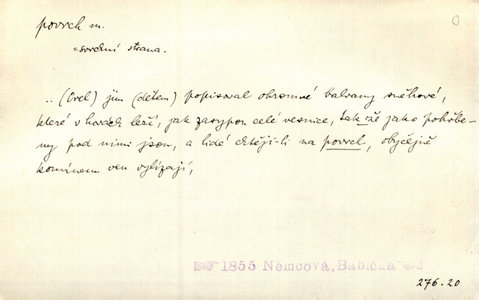 povrch m.
= svrchní strana.
.. (Orel) jim (dětem) popisoval ohromné balvany sněhové,
které v horách leží, jak zasypou celé vesnice, tak že jako pohřbe-
ny pod nimi jsou, a lidé chtějí-li na povrch, obyčejně
komínem ven vylízají,
1855 Němcová, Babička
276.20